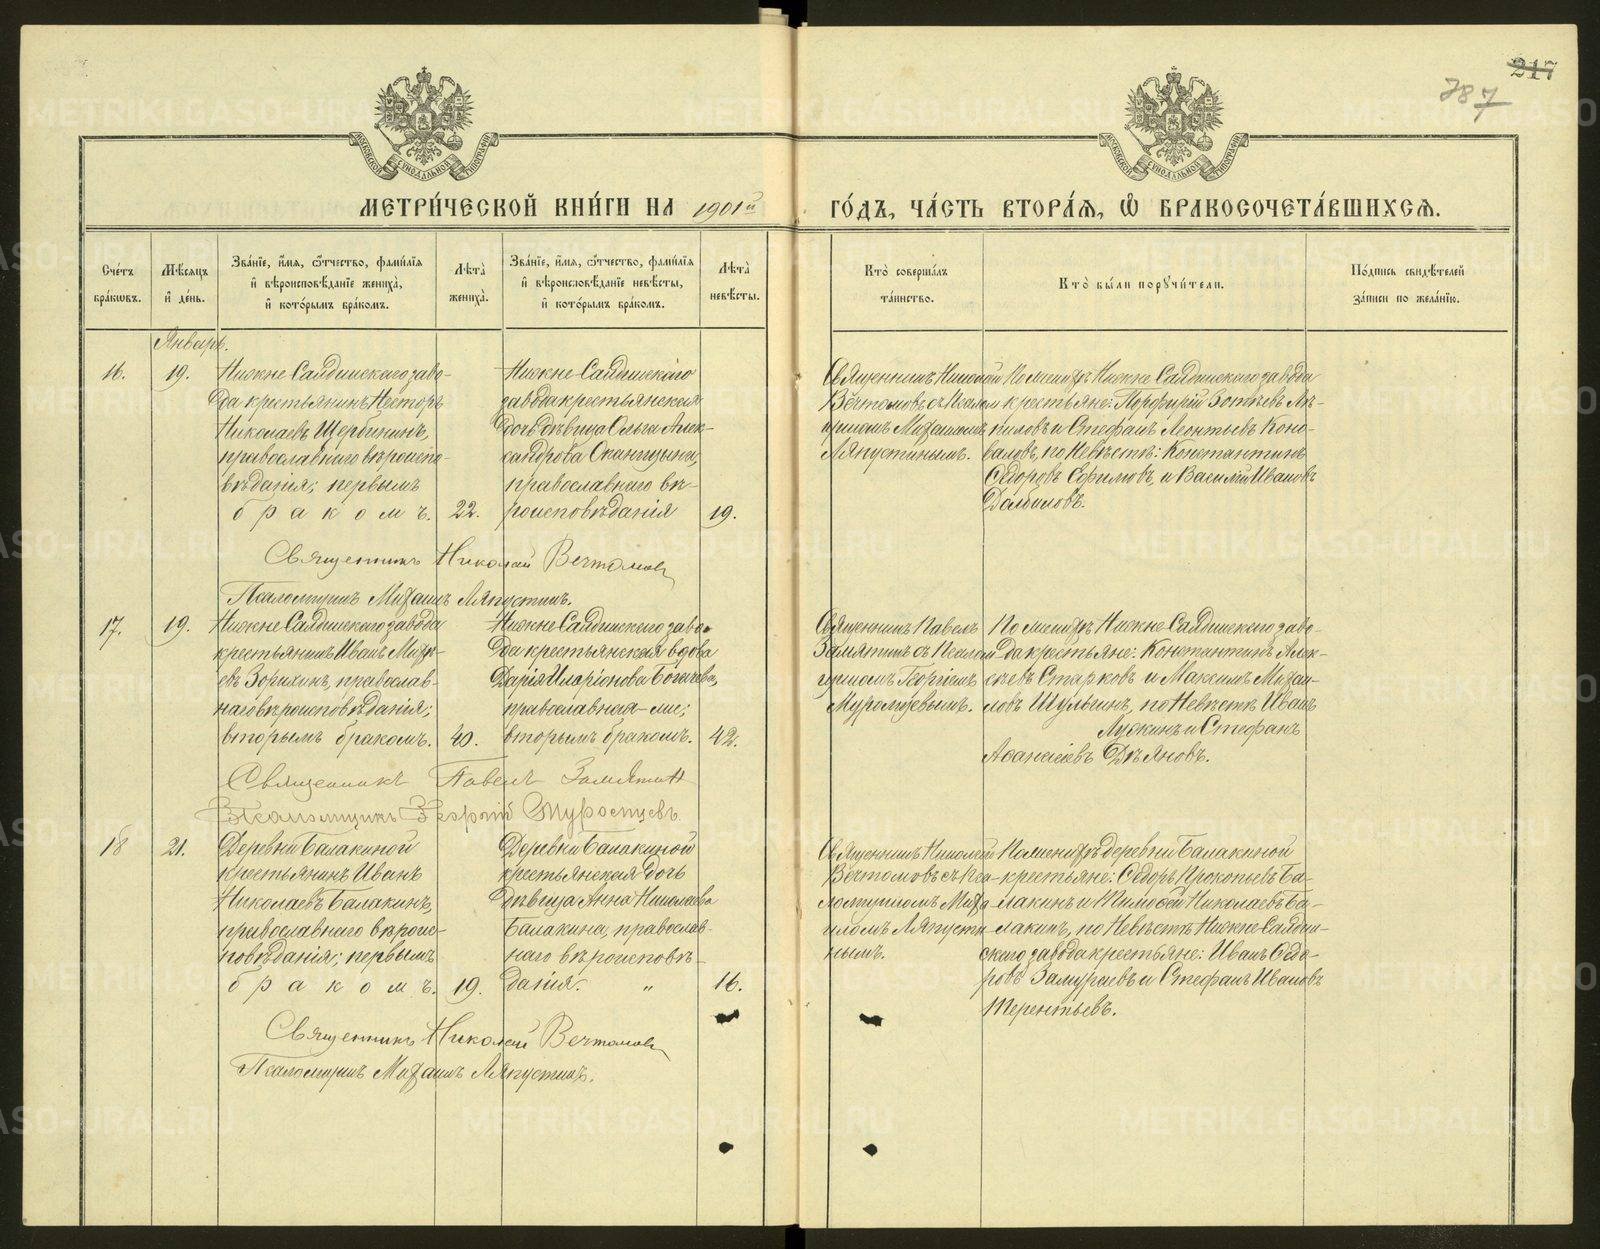 217
787
МОСКОВСКОЙ СѴНОДАЛЬНОЙ ТИПОГРАФІИ
МОСКОВСКОЙ СѴНОДАЛЬНОЙ ТИПОГРАФІИ
МЕТРИ́ЧЕСКОЙ КНИ́ГИ НА 1901й ГО́ДЪ, ЧА́СТЬ ВТОРА́Я, Ѽ БРАКОСОЧЕТА́ВШИХСЯ.
Сче́тъ бра́кѡвъ.
Мѣ́сяцъ и҆ де́нь.
Зва́нїе, и҆́мя, ѻ҆́тчество, фами́лїя и҆ вѣроисповѣ́данїе жениха̀, и҆ кото́рымъ бра́комъ.
Лѣ́та жениха̀.
Зва́нїе, и҆́мя, ѻ҆́тчество, фами́лїя и҆ вѣроисповѣ́данїе невѣ́сты, и҆ кото́рымъ бра́комъ.
Лѣ́та невѣ́сты.
Кто̀ соверша́лъ та́инство.
Кто̀ бы́ли порꙋчи́тели.
По́дпись свидѣ́телей за́писи по жела́нїю.
Январь.
16.
19.
Нижне Салдинскаго заво-
да крестьянинъ Несторъ
Николаевъ Щербининъ,
православнаго вѣроиспо-
вѣданія; первымъ
бракомъ.
22.
Нижне-Салдинскаго
завода крестьянская
дочь дѣвица Ольга Алек-
сандрова
православнаго вѣ-
роисповѣданія
19.
Священникъ Николай
Вечтомовъ съ Псалом
щикомъ Михаиломъ
Ляпустинымъ.
По женихѣ Нижне Салдинскаго завода
крестьяне: Порфирій Зотѣевъ
и Стефанъ Леонтьевъ Коно-
валовъ, по Невѣстѣ: Константинъ
Ѳедоровъ Ефимовъ, и Василій Ивановъ
Долбиловъ.
Священникъ Николай Вечтомовъ
Псаломщикъ Михаилъ Ляпустинъ.
17.
19.
Нижне Салдинскаго завода
крестьянинъ Иванъ Миха-
евъ Зорихинъ, православ-
наго вѣроисповѣданія;
вторымъ бракомъ.
40.
Нижне-Салдинскаго заво-
да крестьянская вдова
Дарія Иларіонова Богачева,
православная
вторымъ бракомъ.
42.
Священникъ Павелъ
Замятинъ съ Псалом
щикомъ Георгіемъ
Муромцевымъ.
По женихѣ Нижне-Салдинскаго заво-
да крестьяне: Константинъ Алек-
сѣевъ Старковъ и Максимъ Михаи-
ловъ Шульгинъ, по Невѣстѣ Иванъ
и Стефанъ
Аѳанасіевъ Дѣяновъ.
Священникъ Павелъ Замятинъ
Псаломщикъ Георгій Муромцевъ.
18
21.
Деревни Балакиной
крестьянинъ Иванъ
Николаевъ Балакинъ,
православнаго вѣроис-
повѣданія; первымъ
бракомъ.
19.
Деревни Балакиной
крестьянская дочь
дѣвица Анна Николаева
Балакина, православ-
наго вѣроисповѣ-
данія. "
16.
Священникъ Николай
Вечтомовъ съ Пса-
ломщикомъ Миха-
иломъ Ляпусти-
нымъ.
По женихѣ деревни Балакиной
крестьяне: Ѳедоръ Прокопьевъ Ба-
лакинъ и Тимоѳей Николаевъ Ба-
лакинъ, по Невѣстѣ Нижне-Салдин-
скаго завода крестьяне: Иванъ Ѳедо-
ровъ Замураевъ и Стефанъ Ивановъ
Терентьевъ.
Священникъ Николай Вечтомовъ
Псаломщикъ Михаилъ Ляпустинъ.
METRIKI.GASO-URAL.RU